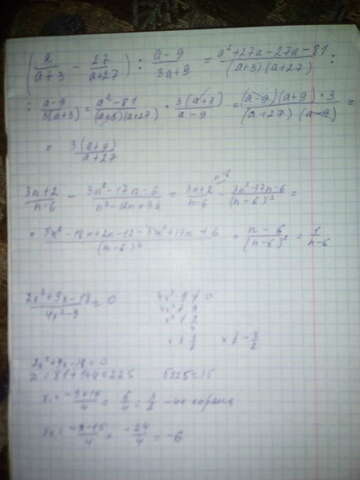 (a/(a+3) - 27/(a+27)) : (a-9)/(3a+9) = (a²+27a-27a-81)/((a+3)(a+27)) :
: (a-9)/(3(a+3)) = (a²-81)/((a+3)(a+27)) · 3(a+3)/(a-9) = ((a-9)(a+9)·3)/((a+27)(a-9)) =
= 3(a+9)/(a+27)
(3n+2)/(n-6) - (3n²-17n-6)/(n²-12n+36) = (3n+2)/(n-6) - (3n²-17n-6)/(n-6)² =
= (3n²-18n+2n-12-3n²+17n+6)/(n-6)² = (n-6)/(n-6)² = 1/(n-6)
(2x²+9x-18)/(4x²-9) = 0
2x²+9x-18=0
D=81+144=225 √225=15
x₁ = (-9+15)/4 = 6/4 = 3/2 - не корень
x₂ = (-9-15)/4 = -24/4 = -6